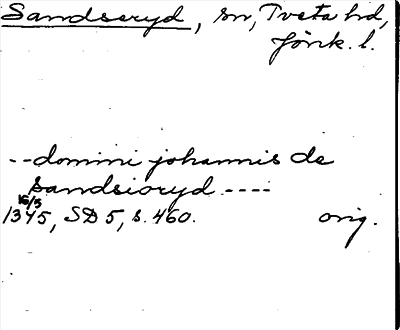 Sandseryd, sn, Tveta hd,
Jönk. l.
--domini johannis de
Sandsioryd ----
16/5
1345, SD 5, s. 460. orig.